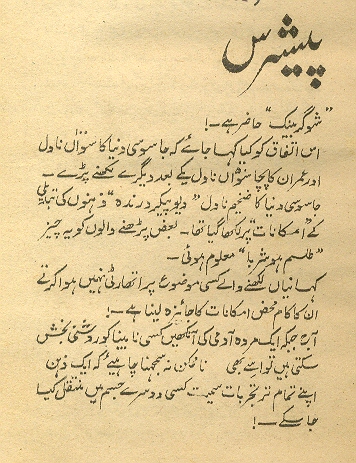 پیشرس
”شوگر بینک“ حاضر ہے۔!
اس اتفاق کو کیا کہا جائے کہ جاسوسی دنیا کا سواں ناول
اور عمران کا پچاسواں ناول یکے بعد دیگرے لکھنے پڑے۔
جاسوسی دنیا کا ضخیم ناول ”دیو پیکر درندہ“ ذہنوں کی تبدیلی
کے امکانات پر لکھا گیا تھا۔ بعض پڑھنے والوں کو یہ چیز
”طلسم ہوشربا“ معلوم ہوئی۔
کہانیاں لکھنے والے کسی موضوع پر اتھارٹی نہیں ہوا کرتے
ان کا کام محض امکانات کا جائزہ لینا ہے۔!
آج جبکہ ایک مردہ آدمی کی آنکھیں کسی نابینا کو روشنی بخش
سکتی ہیں تو اسے بھی ناممکن نہ سمجھنا چاہیئے کہ ایک ذہن
اپنے تمام تر تجربات سمیت کسی دوسرے جسم میں منتقل کیا
جا سکے۔!